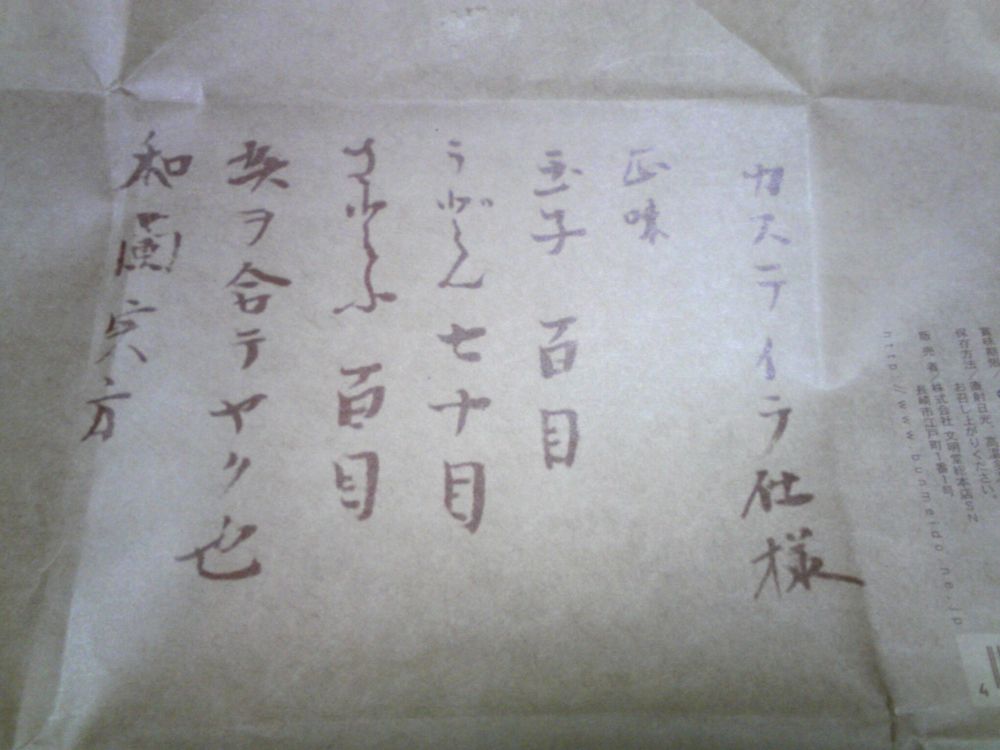 カステイラ仕様
正味
玉子 百目
うどん 七十目
さとふ 百目
ヲ合テヤク也
和蘭 方
保存方法／直射日光、高温
お召し上がりください
販売者／株式会社 文明堂総本店SN
長崎市江戸町1番1号
http://www.bunmeido.ne.jp
4